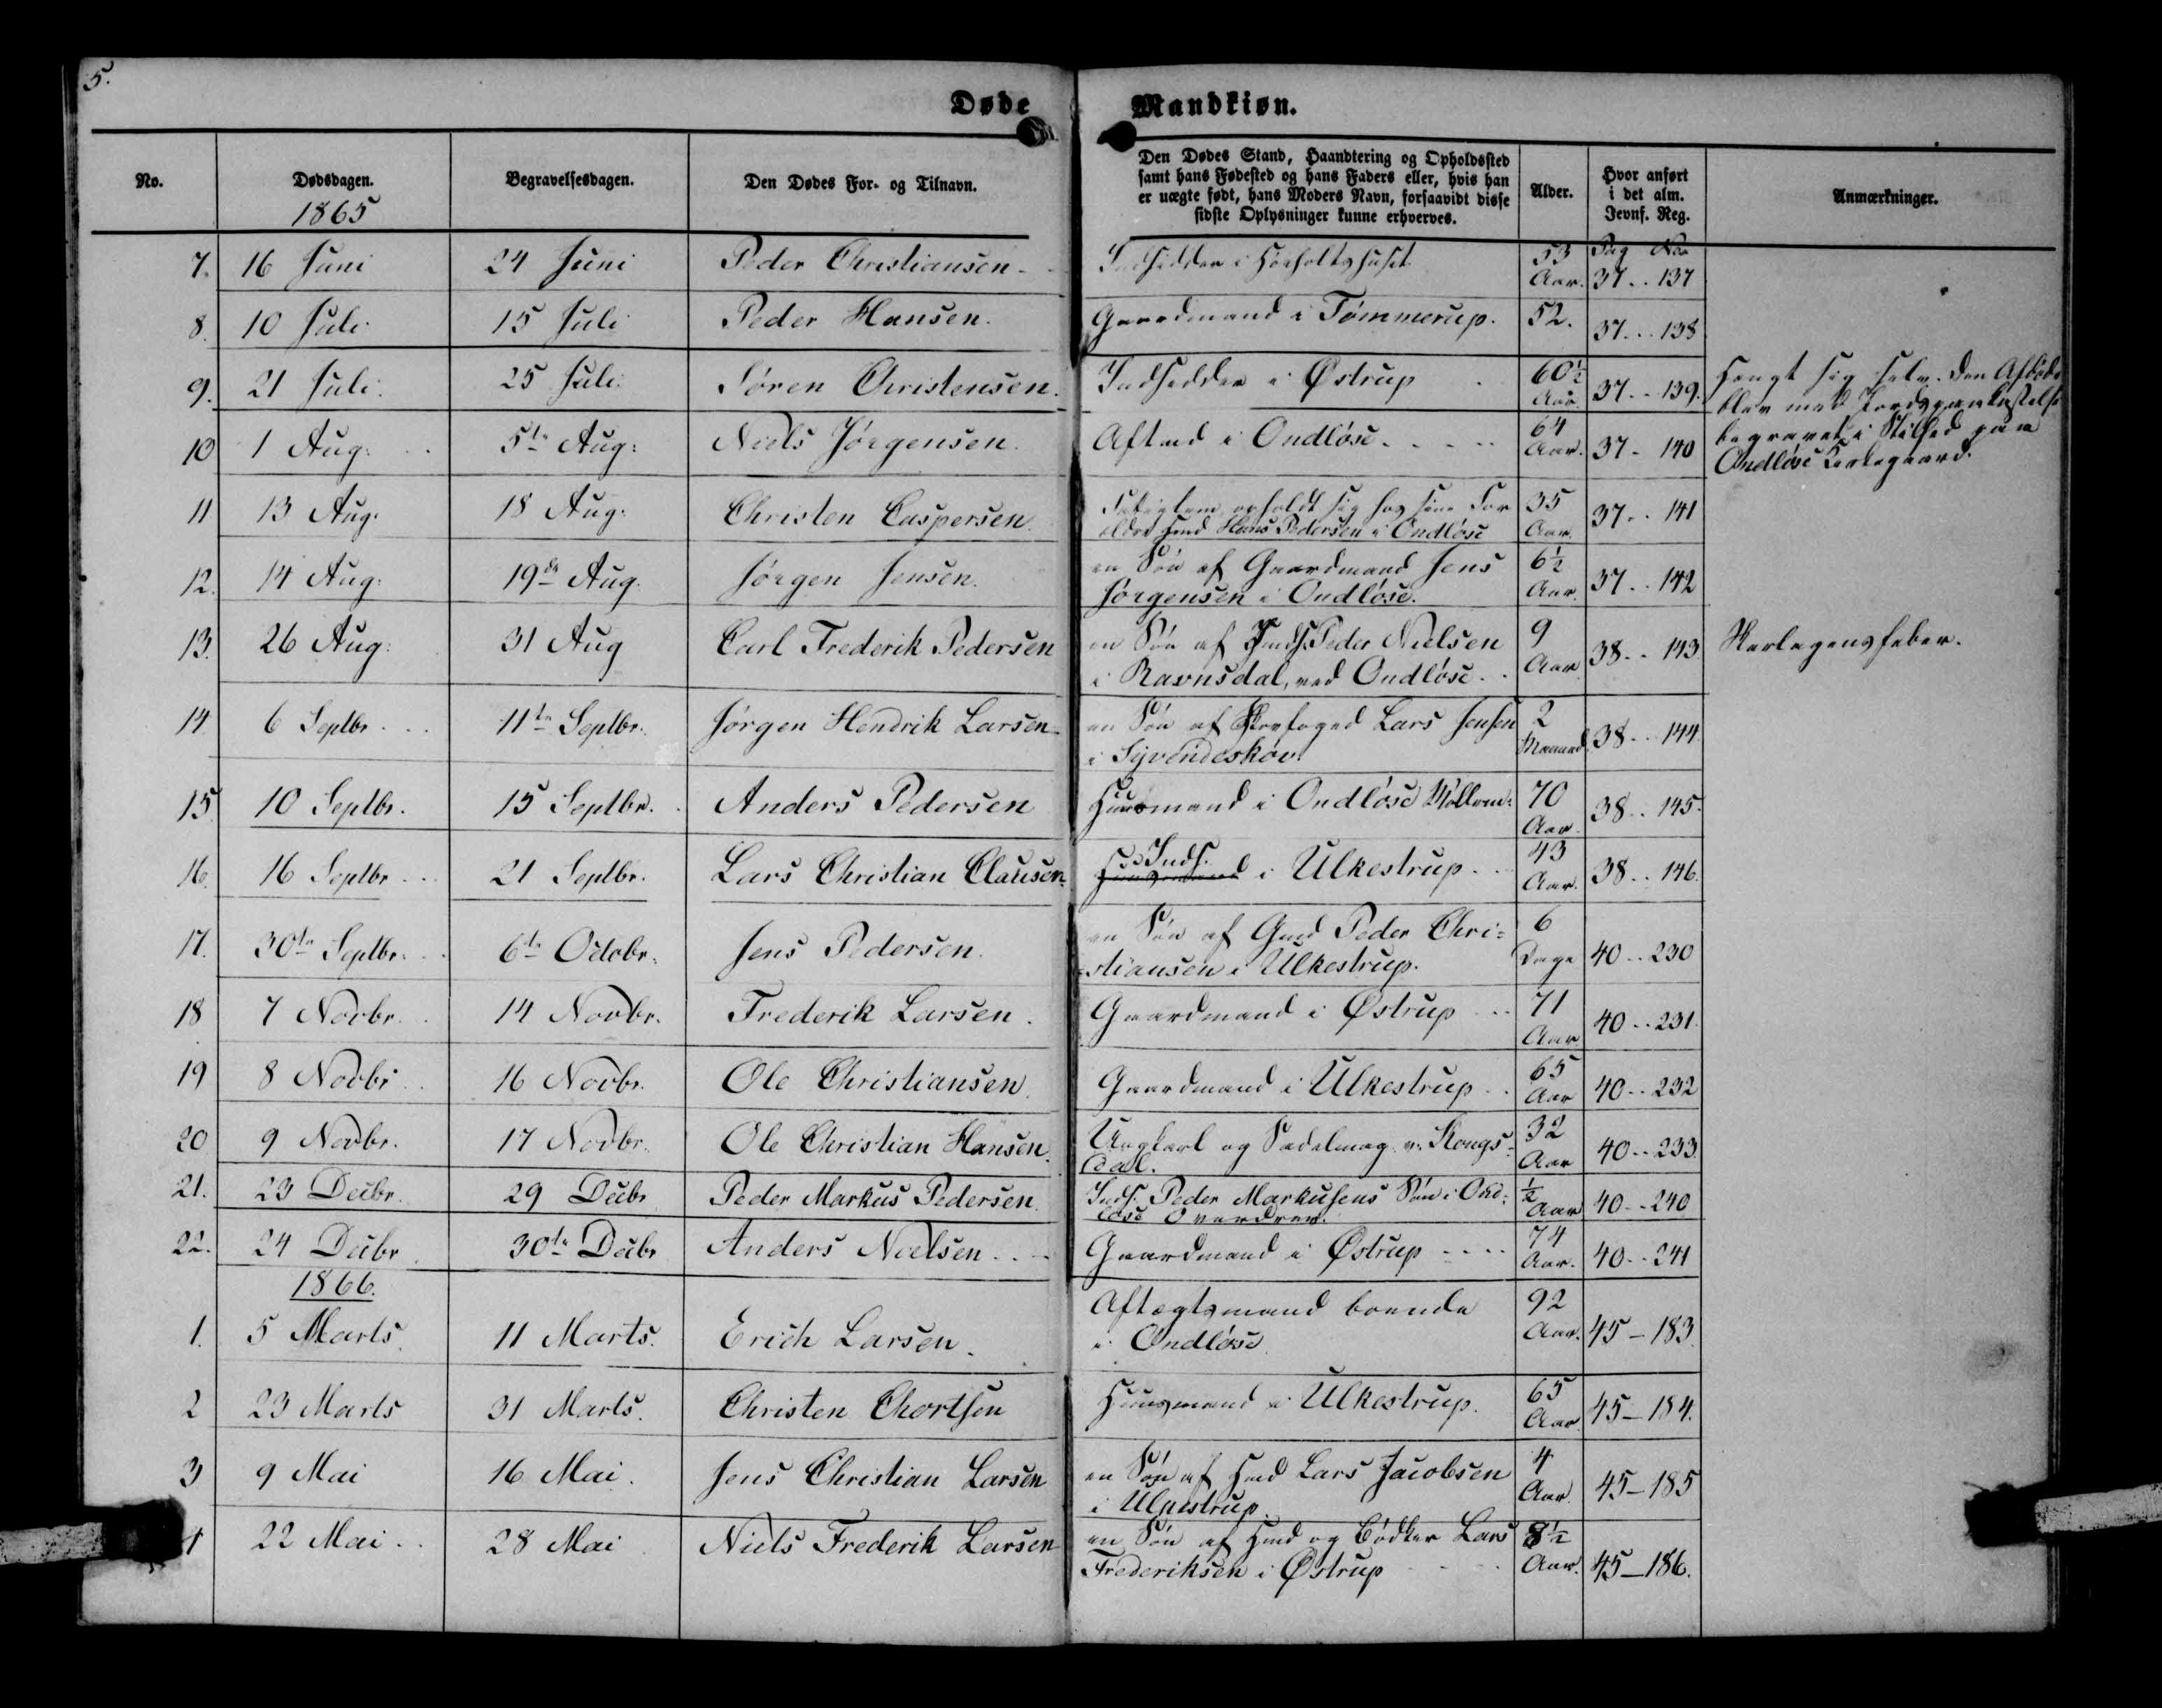 5.
Døde Mandkiøn.
No.
Dødsdagen.
1865
Begravelsesdagen.
Den Dødes For- og Tilnavn.
Den Dødes Stand, Haandtering og Opholdssted
samt hans Fødested og hans Faders eller, hvis han
er uægte født, hans Moders Navn, forsaavidt disse
sidste Oplysninger kunne erhverves.
Alder.
Hvor anført
i det alm.
Jevnf. Reg.
Anmærkninger.
Pag No
7. 16 Juni 24 Juni Peder Christiansen Indsidder i 53
Aar. 37 .. 137
8. 10 Juli 15 Juli Peder Hansen. Gaardmand i Tømmerup. 52. 37 .. 138
9. 21 Juli. 25 Juli. Søren Christensen. Indsidder i Østrup 60½
Aar. 37 .. 139.
Hængt sig selv. Den Afdøde
blev med Jordspaakastelse
begravet i Stilhed paa
Ondløse Kirkegaard.
10 1 Aug: 5te Aug: Niels Jørgensen. Aftmd i Ondløse 64
Aar. 37 - 140
11 13 Aug. 18 Aug. Christen Caspersen. opholdt sig hos sine For
ældre Hmd Hans Pedersen i Ondløse 35
Aar. 37 .. 141
12. 14 Aug: 19de Aug. Jørgen Jensen. en Søn af Gaardmand Jens
Jørgensen i Ondløse. 6½
Aar. 37 .. 142
13. 26 Aug: 31 Aug Carl Frederik Pedersen en Søn af Inds. Peder Nielsen
i Ravnsdal, ved Ondløse. 9
Aar 38 .. 143 Skarlagensfeber.
14. 6 Septbr 11te Septbr. Jørgen Hendrik Larsen en Søn af Skovfoged Lars Jensen
i Syvendeskov. 2
Maaned. 38 .. 144.
15. 10 Septbr. 15 Septbr. Anders Pedersen Huusmand i Ondløse 70
Aar. 38 .. 145.
16. 16 Septbr 21 Septbr. Lars Christian Clausen Inds.
Huusmand i Ulkestrup. 43
Aar. 38 .. 146.
17. 30te Septbr. 6te Octobr. Jens Pedersen. en Søn af Gmd Peder Chri=
stiansen i Ulkestrup. 6
Dage 40 .. 230
18 7 Novbr. 14 Novbr. Frederik Larsen. Gaardmand i Østrup 71
Aar 40 .. 231.
19 8 Novbr 16 Novbr. Ole Christiansen. Gaardmand i Ulkestrup 65
Aar 40 .. 232
20 9 Novbr. 17 Novbr. Ole Christian Hansen. Ungkarl og Sadelmag. v. Kongs=
dal. 32
Aar 40 .. 233.
21. 23 Decbr. 29 Decbr Peder Markus Pedersen. Inds. Peder Markusens Søn i Ond=
løse Overdrev. ½
Aar 40 .. 240
22. 24 Decbr 30te Decbr Anders Nielsen Gaardmand i Østrup 74
Aar. 40 .. 241
1866.
1. 5 Marts. 11 Marts. Erich Larsen. Aftægtsmand boende
i Ondløse. 92
Aar. 45 - 183.
2 23 Marts 31 Marts. Christen Chortsen Huusmand i Ulkestrup. 65
Aar 45 - 184.
3 9 Mai 16 Mai. Jens Christian Larsen en Søn af Hmd Lars Jacobsen
i Ulkestrup. 4
Aar. 45 - 185
4 22 Mai 28 Mai Niels Frederik Larsen en Søn af Hmd og Bødker Lars
Frederiksen i Østrup 8½
Aar. 45 - 186.